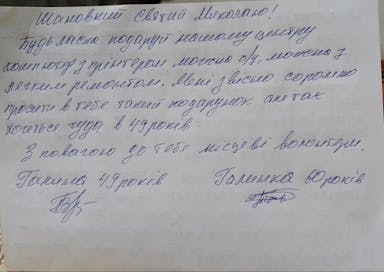 Шановний Святий Миколаю!
Будь ласка подаруй нашому центру
компютер з прінтером можна б/у, можна з
легким ремонтом. Мені звісно соромно
просити в тебе такий подарунок але так
хочеться чуда в 49 років
З повагою до тебе місцеві волонтери.
Ганина 49 років Галинка 60 років